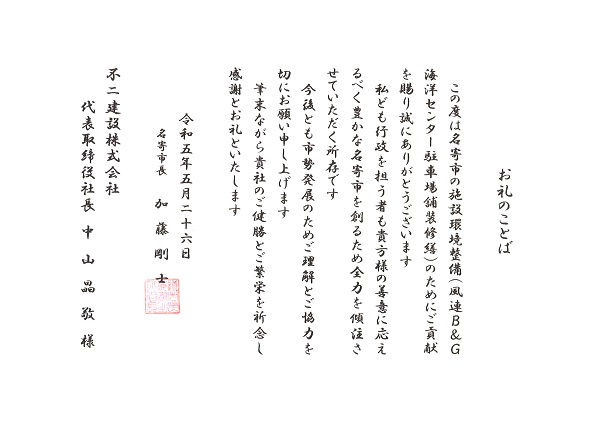 お礼のことば
この度は名寄市の施設環境整備(風連B&G
海洋センター駐車場舗装修繕)のためにご貢献
を賜り誠にありがとうございます
私ども行政を担う者も貴方様の善意に応え
るべく豊かな名寄市を創るため全力を傾注さ
せていただく所存です
今後とも市勢発展のためご理解とご協力を
切にお願い申し上げます
筆末ながら貴社のご健勝とご繁栄を祈念し
感謝とお礼といたします
令和五年五月二十六日
名寄市長 加藤剛士
不二建設株式会社
代表取締役社長 中山晶敬様